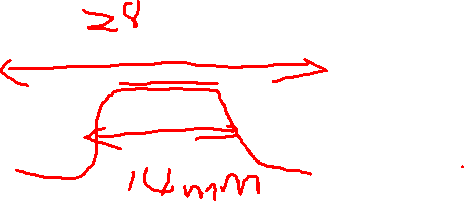 28
14mm